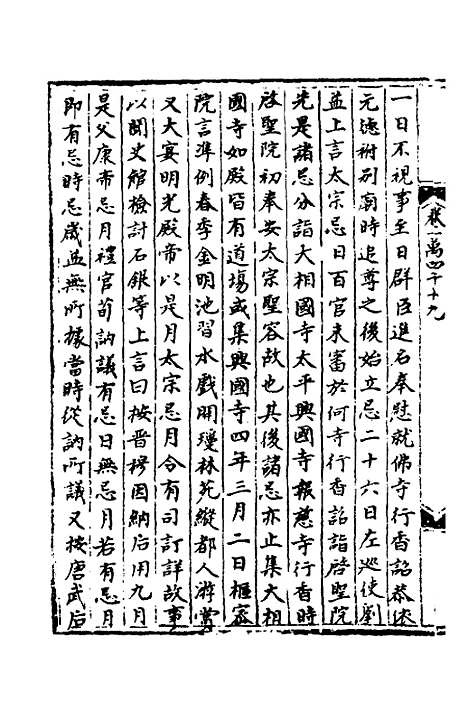 卷一萬四千十九
一日不視事至日群臣進名奉慰就佛寺行香詔恭依
元德祔別廟時追尊之後始立忌二十六日左巡使劉
益上言太宗忌日百官未審於何寺行香詔詣啓聖院
先是諸忌分詣大相國寺太平興國寺報慈寺行香時
啓聖院初奉安太宗聖容故也其後諸忌亦止集大相
國寺如殿皆有道場或集興國寺四年三月二日樞密
院言準例春季金明池習水戲開瓊林苑縱都人游賞
又大宴明光殿帝以是月太宗忌月令有司訂詳故事
以聞史館檢討石銀等上言曰按晋穆因納后用九月
是父康帝忌月禮官荀訥議有忌日無忌月若有忌月
即有忌時忌歲並無所據當時從訥所議又按唐武后